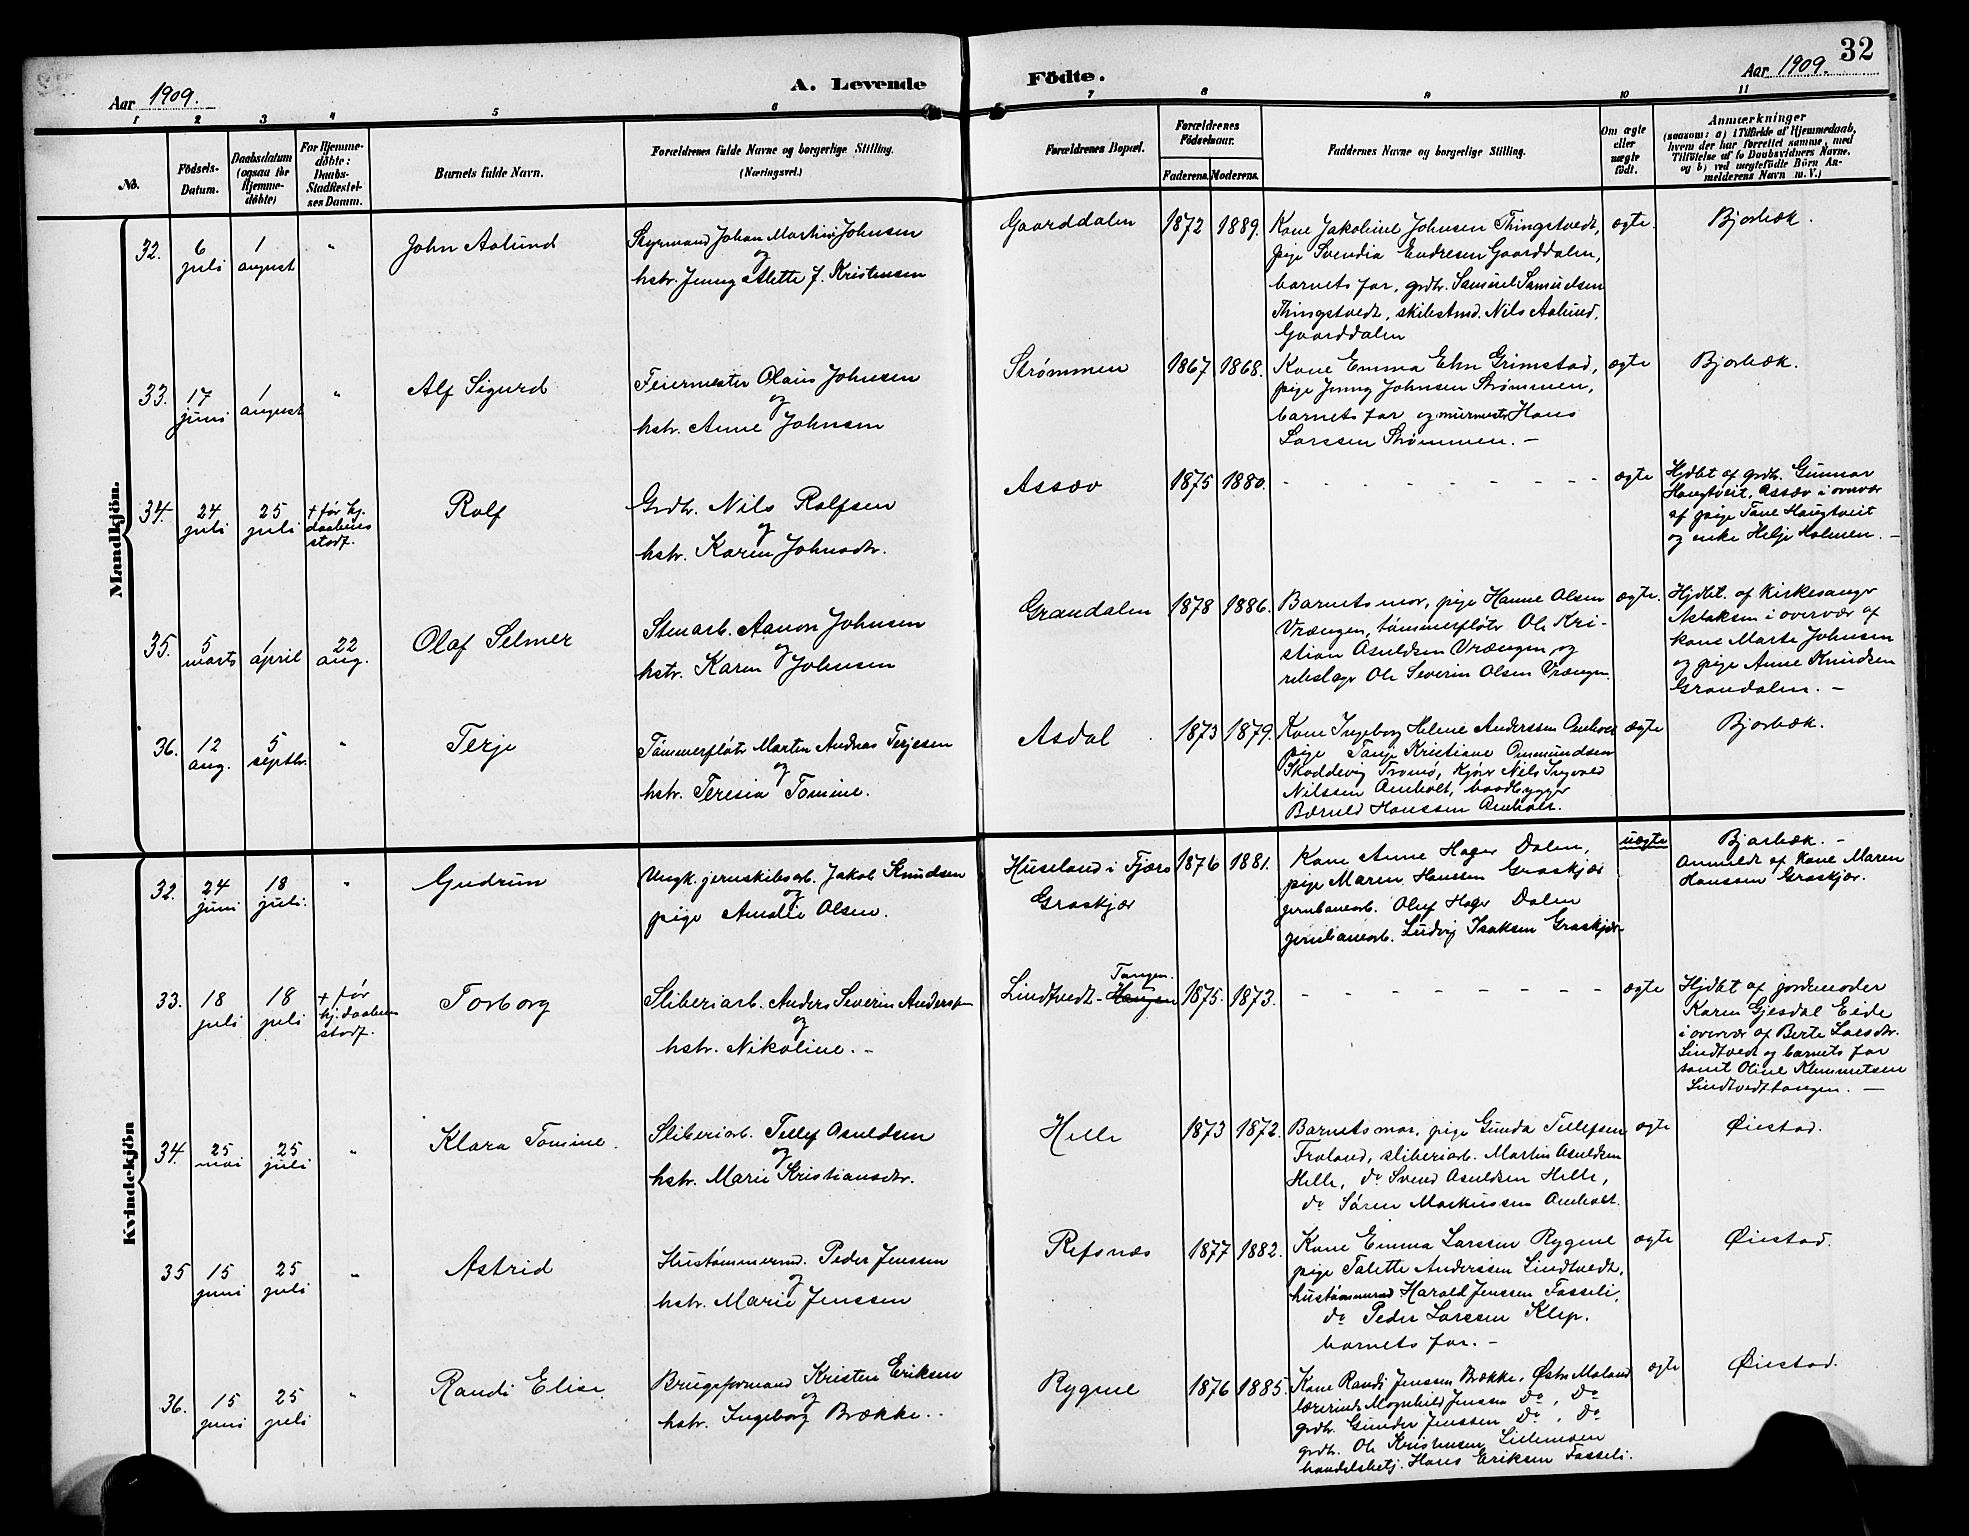 32
Aar 1909.
A. Levende
Födte.
Aar 1909.
1 2 3 4 5 6 7 8 9 10 11
No.
Födsels-
Datum.
Daabsdatum
(ogsaa for
Hjemme-
döbte)
For Hjemme-
döbte:
Daabs-
Stadfæstel-
ses Datum.
Barnets fulde Navn.
Forældrenes fulde Navne og borgerlige Stilling.
(Næringsvei.)
Forældrenes Bopæl.
Forældrenes
Födselsaar.
Faderens. Moderens.
Faddernes Navne og borgerlige Stilling.
Om ægte
eller
uægte
födt.
Anmærkninger
(saasom: a) i Tilfælde af Hjemmedaab,
hvem der har forrettet samme, med
Tilföielse af to Daabsvidners Navne,
og b) ved uægtefödte Börn An-
melderens Navn m. V.)
Mandkjön.
32. 6 juli
1 august
"
John Aalund
Styrmand Johan Martin Johnsen
og
hstr. Jenny Alette J. Kristensen
Gaarddalen
1872 1889.
Kone Jakoline Johnsen Thingstvedt,
pige Svendia Endresen Gaarddalen,
barnets far, grdbr. Samuel Samuelsen
Thingstvedt, skibstmd. Nils Aalund,
Gaarddalen
ægte.
Bjorbæk.
33. 17 juni
1 august
"
Alf Sigurd
Feiermester Olaus Johnsen
og
hstr. Anne Johnsen
Strømmen
1867 1868.
Kone Emma Ehn Grimstad,
pige Jenny Johnsen Strømmen,
barnets far og murmester Hans
Larssen Strømmen. –
ægte
Bjorbæk.
34. 24 juli
25 juli
+ før hj.
daabens
stadf.
Rolf
Grdbr. Nils Rolfsen
og
hstr. Karen Johnsdtr.
Assæv
1875 1880.
- - - - - - - - -
ægte
Hjdbt af grdbr. Gunnar
Haugtveit, Assæv i overvær
af pige Tone Haugtveit
og enke Helje Holmen. –
35. 5 marts
1 april
22 aug.
Olaf Selmer
Stenarb. Aanon Johnsen
og
hstr. Karen Johnsen
Grandalen
1878 1886.
Barnets mor, pige Hanne Olsen
Vrængen, tømmerfløter Ole Kri-
stian Asuldsen Vrængen, og
rebslager Ole Severin Olsen Vrængen.
ægte.
Hjdbt. af kirkesanger
Aslaksen i overvær af
kone Marte Johnsen
og pige Anne Knudsen
Grandalen. –
36. 12 aug.
5 septbr.
"
Terje
Tømmerfløter Marten Andreas Terjesen
og
hstr. Teresia Tomine.
Asdal
1873 1879.
Kone Ingeborg Helene Anderssen Amholt
pige Tanje Kristiane Ommundsen
Skoddevig Tromø, Kjører Nils Ingvald
Nilssen Amholt, baadbygger
Bernld Hanssen Amholt.
ægte
Bjorbæk.
Kvindekjön
32. 24 juni
18 juli.
"
Gudrun
Ungk. jernskibsarb. Jakob Knudsen
og
pige Amalie Olsen.
Huseland i Fjære
Graskjær
1876 1881.
Kone Anne Hager Dalen,
pige Maren Hanssen Graskjær
jernbanearb. Oluf Hager Dalen
jernbanearb. Ludvig Isaksen Graskjær
uægte
Bjorbæk. –
Anmeldt af Kone Maren
Hanssen Graskjær.
33. 18 juli
18 juli
+ før
hj.daabens
stadf.
Torborg
Sliberiarb. Anders Severin Anderssen
og
hstr. Nikoline. –
Tangen.
Lindtvedt-Haugen
1875. 1873.
- - - - - - - - -
ægte
Hjdbt af jordmoder
Karen Gjesdal Eide
i overvær af Berte Larsdtr.
Lindtvedt og barnets far
samt Oline Klemmetsen
Lindtvedttangen. –
34. 25 mai
25 juli
"
Klara Tomine.
Sliberiarb. Tellef Asuldsen
og
hstr. Marie Kristiansdtr.
Helle
1873 1872.
Barnets mor, pige Gunda Tellefsen
Froland, sliberiarb. Martin Asuldsen
Helle, do Svend Asuldsen Helle,
do Søren Markussen Amholt.
ægte
Øiestad.
35 15 juni
25 juli
"
Astrid
Hustømmermd. Peder Jenssen
og
hstr. Marie Jenssen
Refsnæs
1877 1882.
Kone Emma Larssen Rygene
pige Talette Anderssen Lindtvedt,
hustømmermd Harald Jenssen Fasseli,
do Peder Larssen Klep.
barnets far. –
ægte
Øiestad.
36. 15 juni
25 juli
"
Randi Elise
Brugsformand Kristen Eriksen
og
hstr. Ingeborg Brække..
Rygene
1876 1885.
Kone Randi Jenssen Brække, Østre Moland
lærerinde Magnhild Jenssen Do, Do
grdbr. Gunder Jenssen Do, Do
grdbr. Ole Kristensen Lillemoen
handelsbetj. Hans Eriksen Fasseli.
ægte
Øiestad.